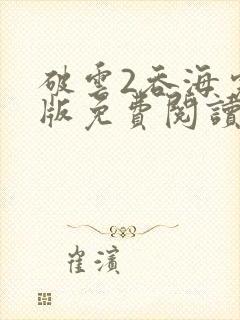 破雲2吞海
版免費閱讀
崔濱